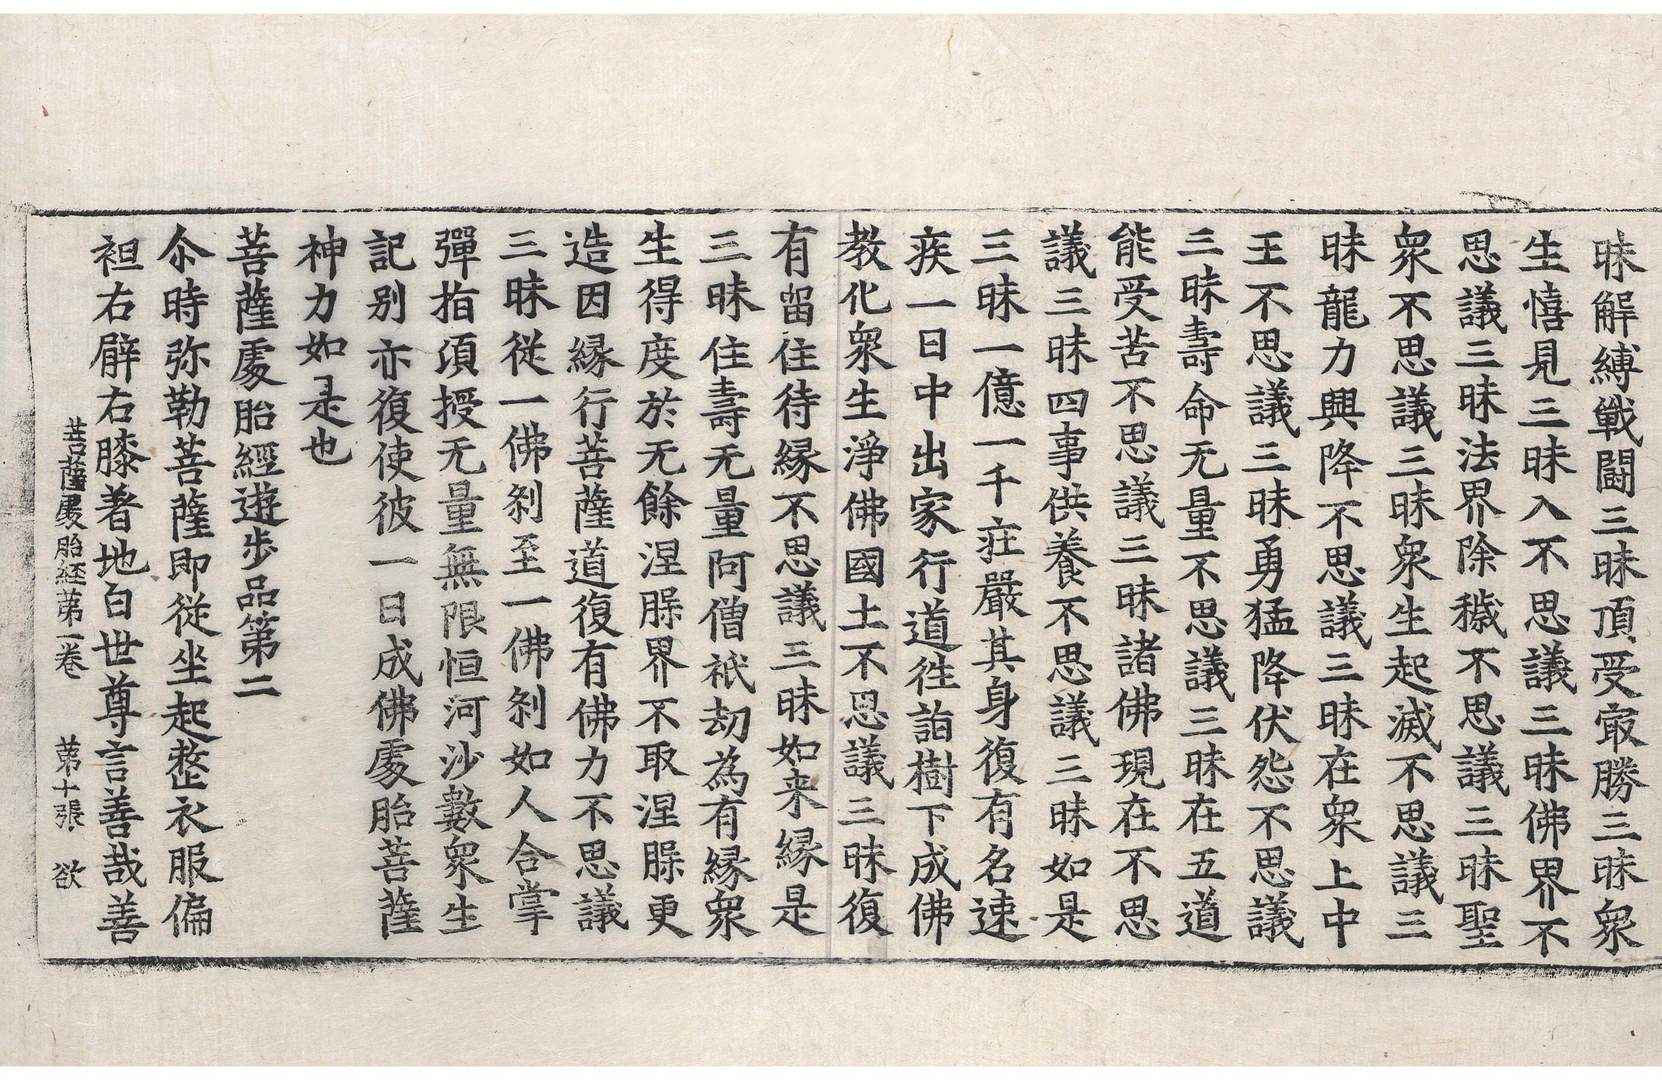 昧解縛戰鬪三昧頂受㝡勝三昧衆
生憘見三昧入不思議三昧佛界不
思議三昧法界除穢不思議三昧聖
衆不思議三昧衆生起滅不思議三
昧龍力興降不思議三昧在衆上中
王不思議三昧勇猛降伏怨不思議
三昧壽命无量不思議三昧在五道
能受苦不思議三昧諸佛現在不思
議三昧四事供養不思議三昧如是
三昧一億一千莊嚴其身復有名速
疾一日中出家行道往詣樹下成佛
教化衆生淨佛國土不思議三昧復
有留住待縁不思議三昧如来縁是
三昧住壽无量阿僧祇劫為有縁衆
生得度於无餘涅脲界不取涅脲更
造因縁行菩薩道復有佛力不思議
三昧從一佛刹至一佛刹如人合掌
彈指項授无量無限恒河沙數衆生
記别亦復使彼一日成佛處胎菩薩
神力如是也
菩薩處胎經遊步品第二
尒時弥勒菩薩即從坐起整衣服偏
袒右臂右膝著地白世尊言善哉善
菩薩處胎経苐一卷 苐十張 欲